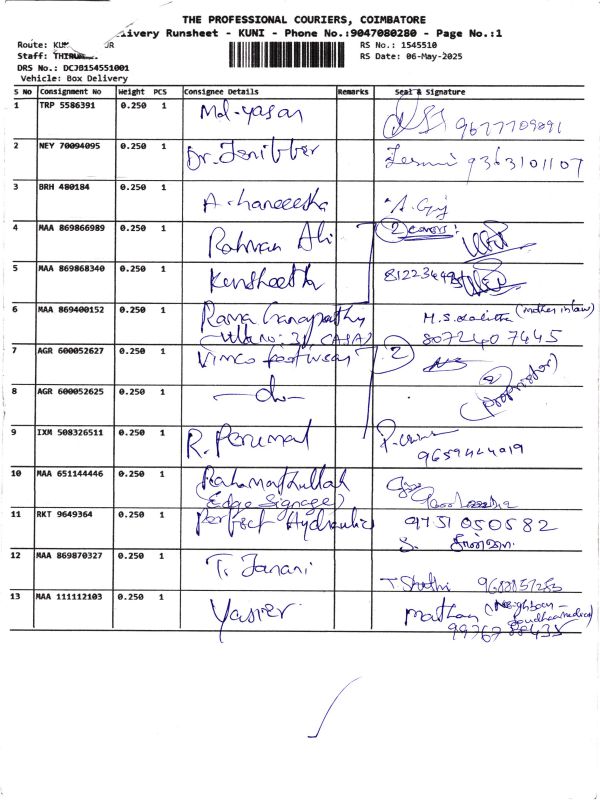 THE PROFESSIONAL COURIERS, COIMBATORE
livery Runsheet - KUNI - Phone No.:9047080280 - Page No.:1
Route: KU
RS No.: 1545510
Staff:
RS Date: 06-May-2025
DRS No.: DCJB154551001
Vehicle: Box Delivery
S No Consignment No Weight PCS Consignee Details Remarks Seal & Signature
1 TRP 5586391 0.250 1 Md-yasar 9677709891
2 NEY 70094095 0.250 1 Dr. Jenibber 9363101107
3 BRH 480184 0.250 1
4 MAA 869866989 0.250 1 Rahman Ali 2 covers
5 MAA 869868340 0.250 1
6 MAA 869400152 0.250 1 Rama Ganapathy M.S. Lalitha (mother in law)
(Villa no: 31, CASA) 8072407445
7 AGR 600052627 0.250 1 Vimco footwear 2
8 AGR 600052625 0.250 1 -do- (proprietor)
9 IXM 508326511 0.250 1 R. Perumal
10 MAA 651144446 0.250 1 Rahamathullah
(Edge Signage)
11 RKT 9649364 0.250 1 Perfect Hydraulics 9751050582
12 MAA 869870327 0.250 1 T. Janani
13 MAA 111112103 0.250 1 Yasier Mathan